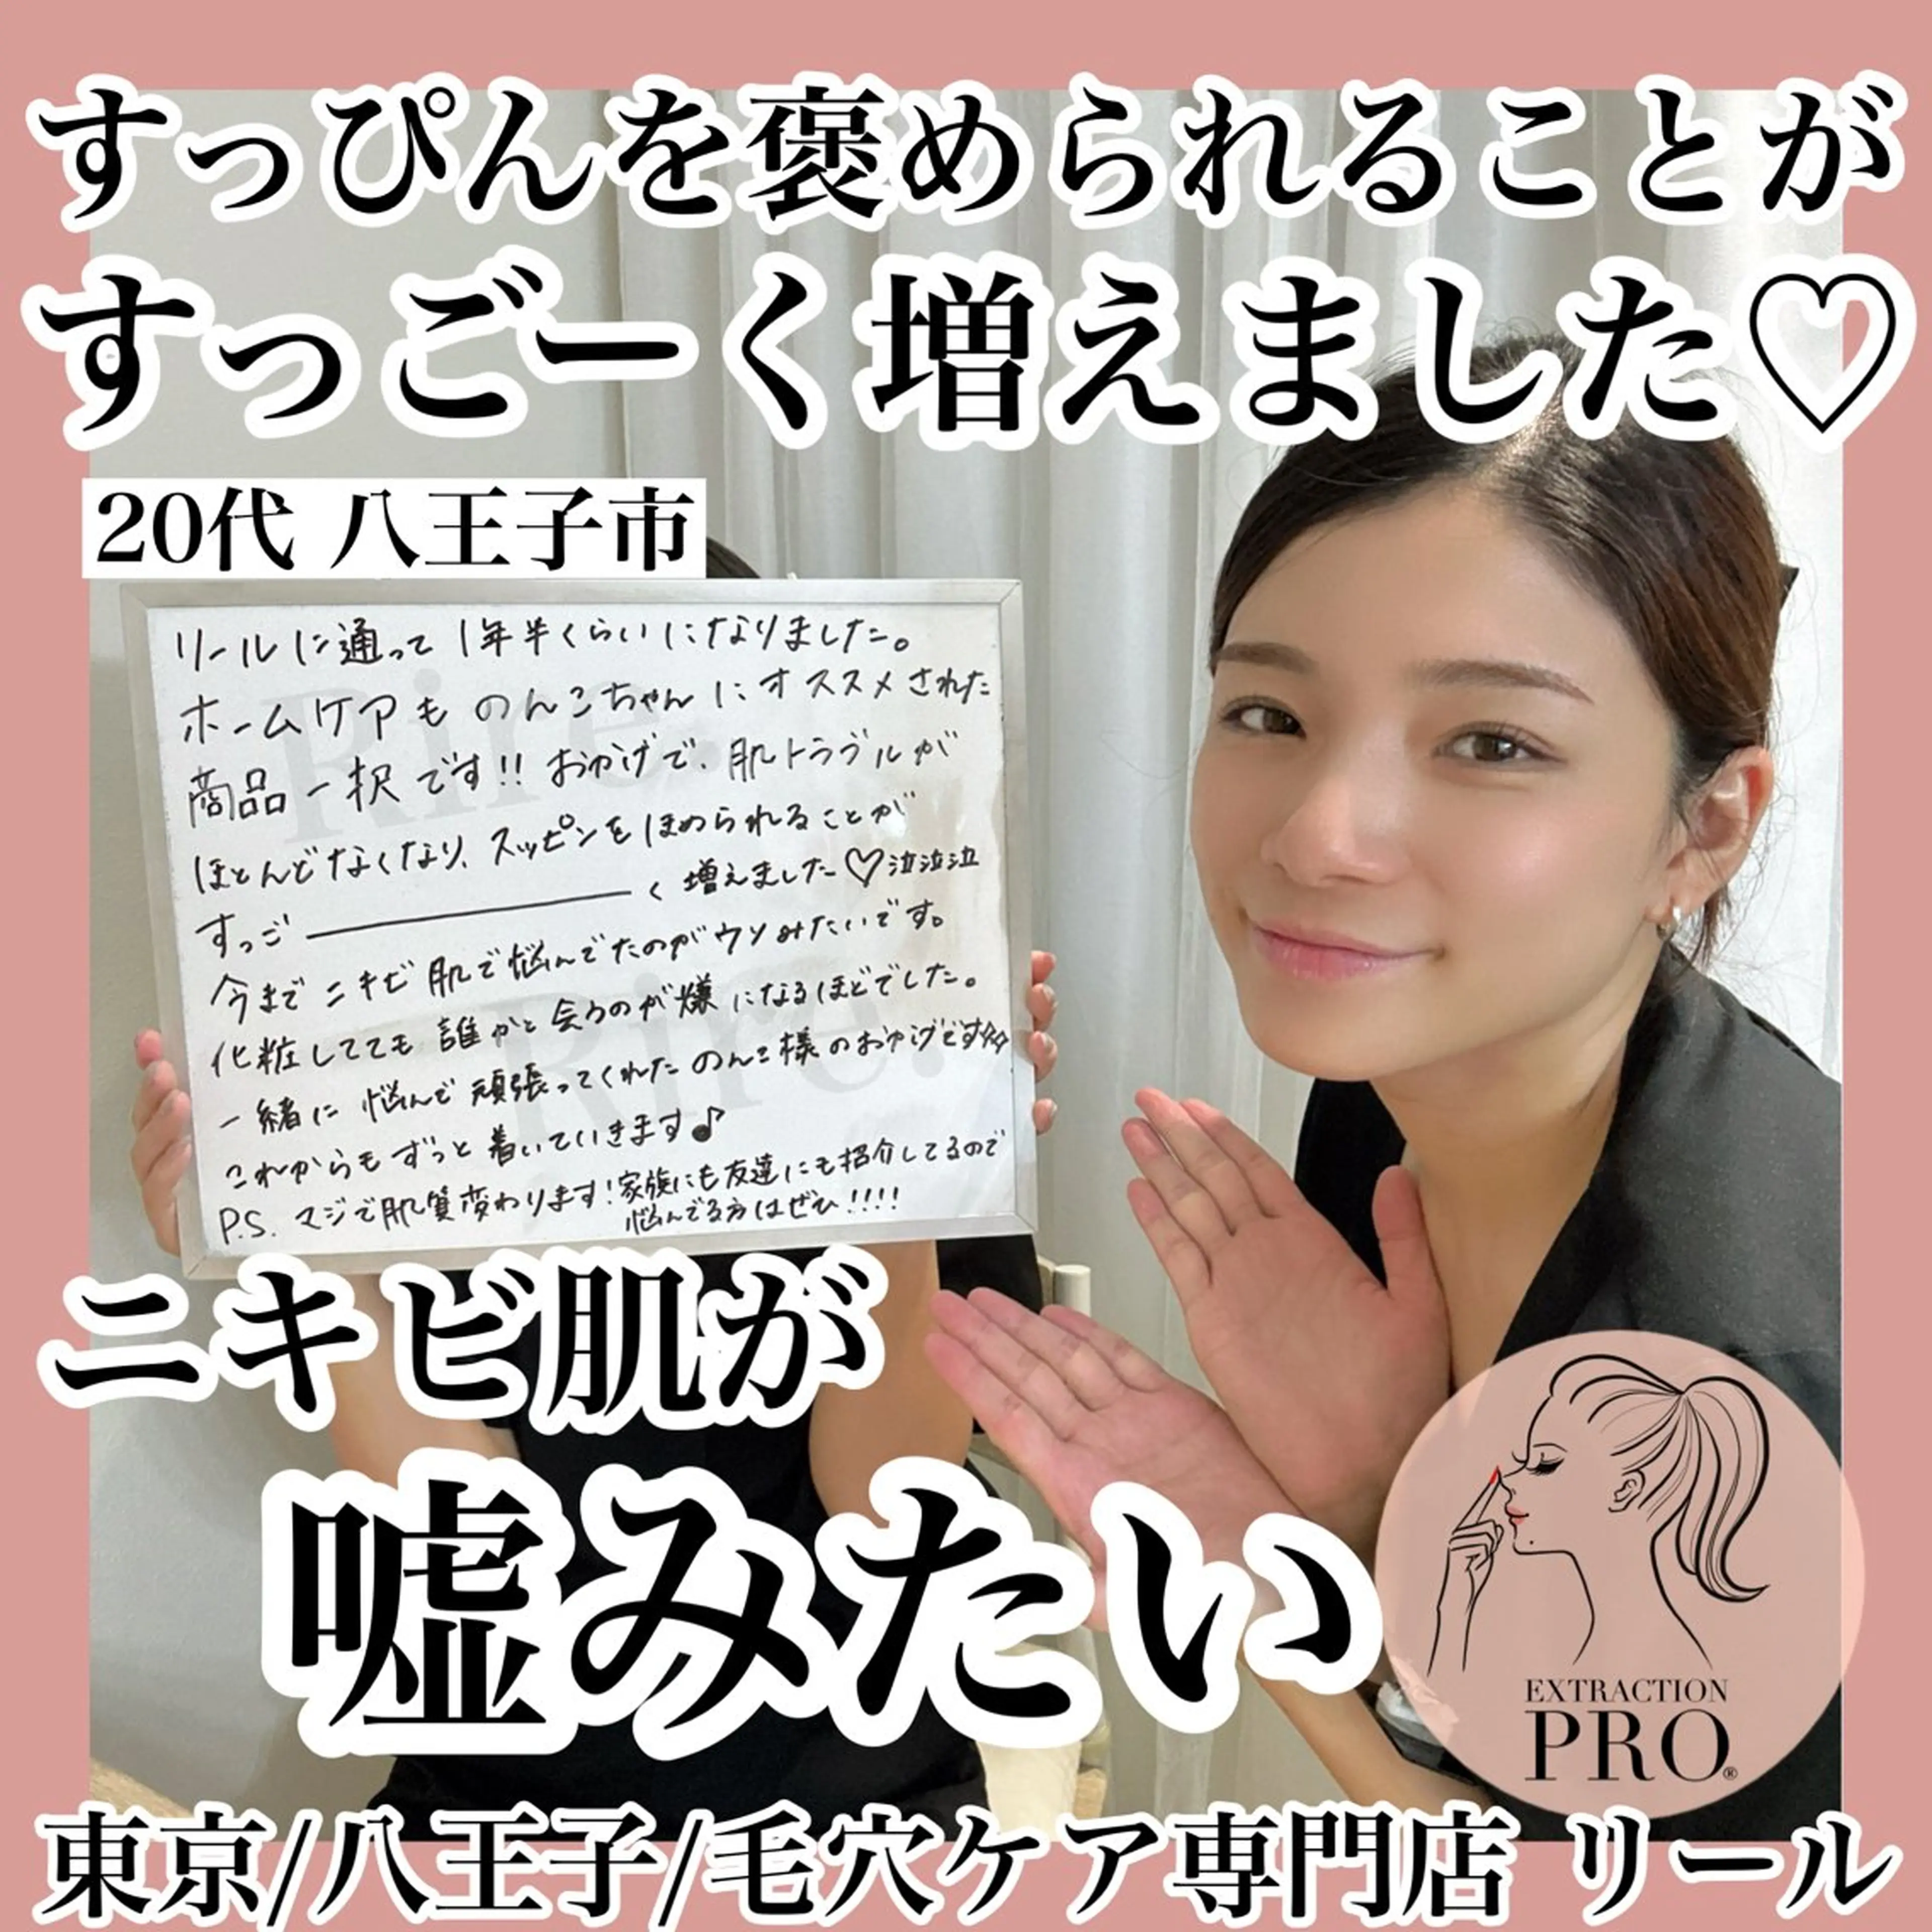 すっぴんを褒められることが
すっごーく増えました♡
20代 八王子市
リールに通って1年半くらいになりました。
ホームケアものんこちゃんにオススメされた
商品一択です!! おかげで、肌トラブルが
ほとんどなくなり、スッピンをほめられることが
すっご―――――く増えました♡泣泣泣
今までニキビ肌で悩んでたのがウソみたいです。
化粧してても誰かと会うのが嫌になるほどでした。
一緒に悩んで頑張ってくれたのんこ様のおかげです
これからもずっと着いていきます♪
P.S. マジで肌質変わります!家族にも友達にも紹介してるので
悩んでる方はぜひ!!!!
Rire.
Rire.
ニキビ肌が
嘘みたい
EXTRACTION
PRO®
東京/八王子/毛穴ケア専門店 リール